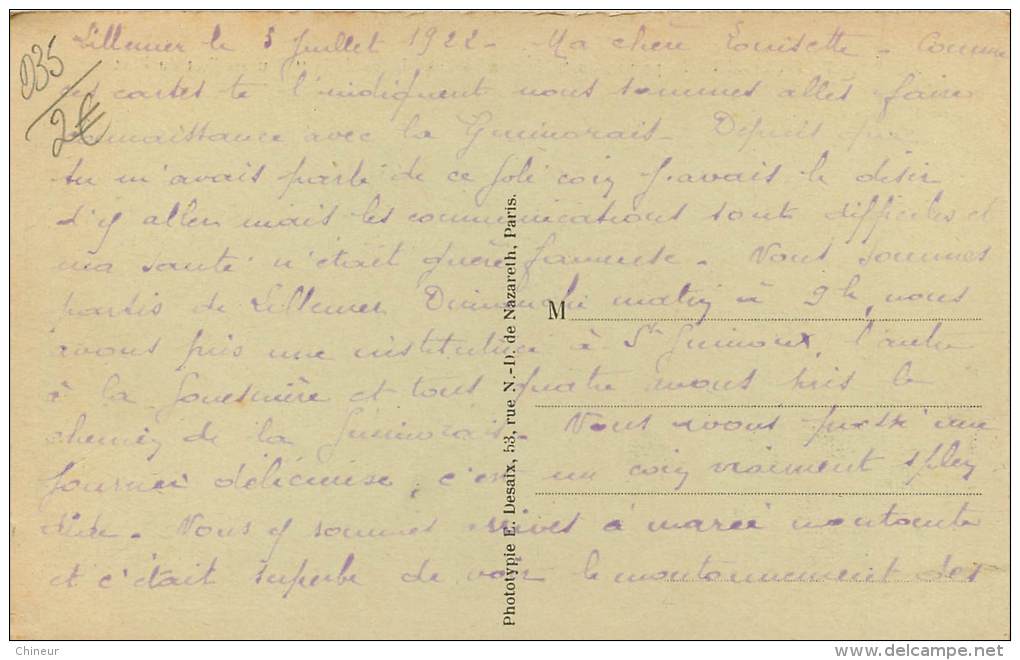 D35
2€
Lillemer le 5 Juillet 1922 - Ma chère Louisette - Comme
ces cartes te l'indiquent nous sommes allés faire
connaissance avec la Guimorais - Depuis que
tu m'avais parlé de ce joli coin j'avais le désir
d'y aller mais les communications sont difficiles et
ma santé n'était guère fameuse. Nous sommes
partis de Lillemer Dimanche matin à 9h, nous
avons pris une institutrice à St Guinoux, l'autre
à la Gouesnière et tous quatre avons pris le
chemin de la Guimorais. Nous avons passé une
journée délicieuse, c'est un coin vraiment splen
dide. Nous y sommes arrivés à marée montante
et c'était superbe de voir le moutonnement des
M
Phototypie E. Desaix, 53, rue N.-D. de Nazareth, Paris.
Chineur
www.delcampe.net